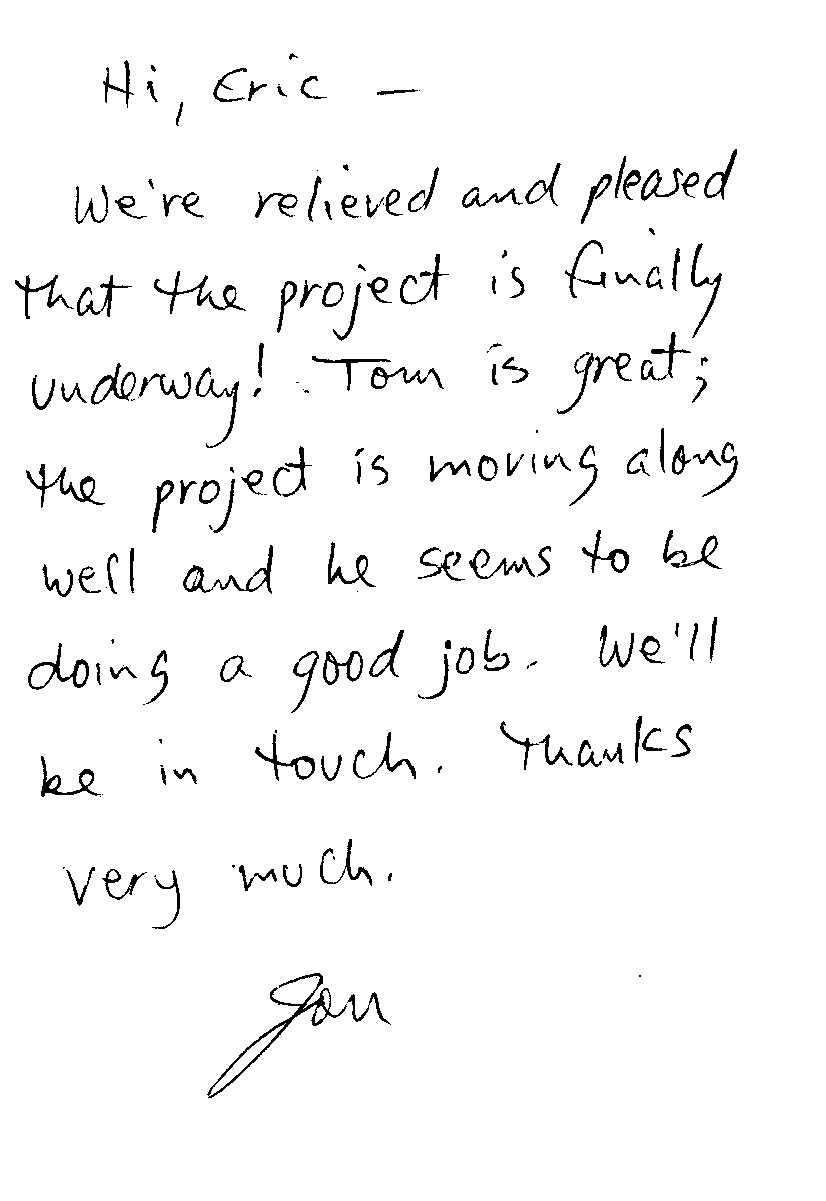 Hi, Eric —
We're relieved and pleased
that the project is finally
underway! Tom is great;
the project is moving along
well and he seems to be
doing a good job. We'll
be in touch. Thanks
very much.
Jon